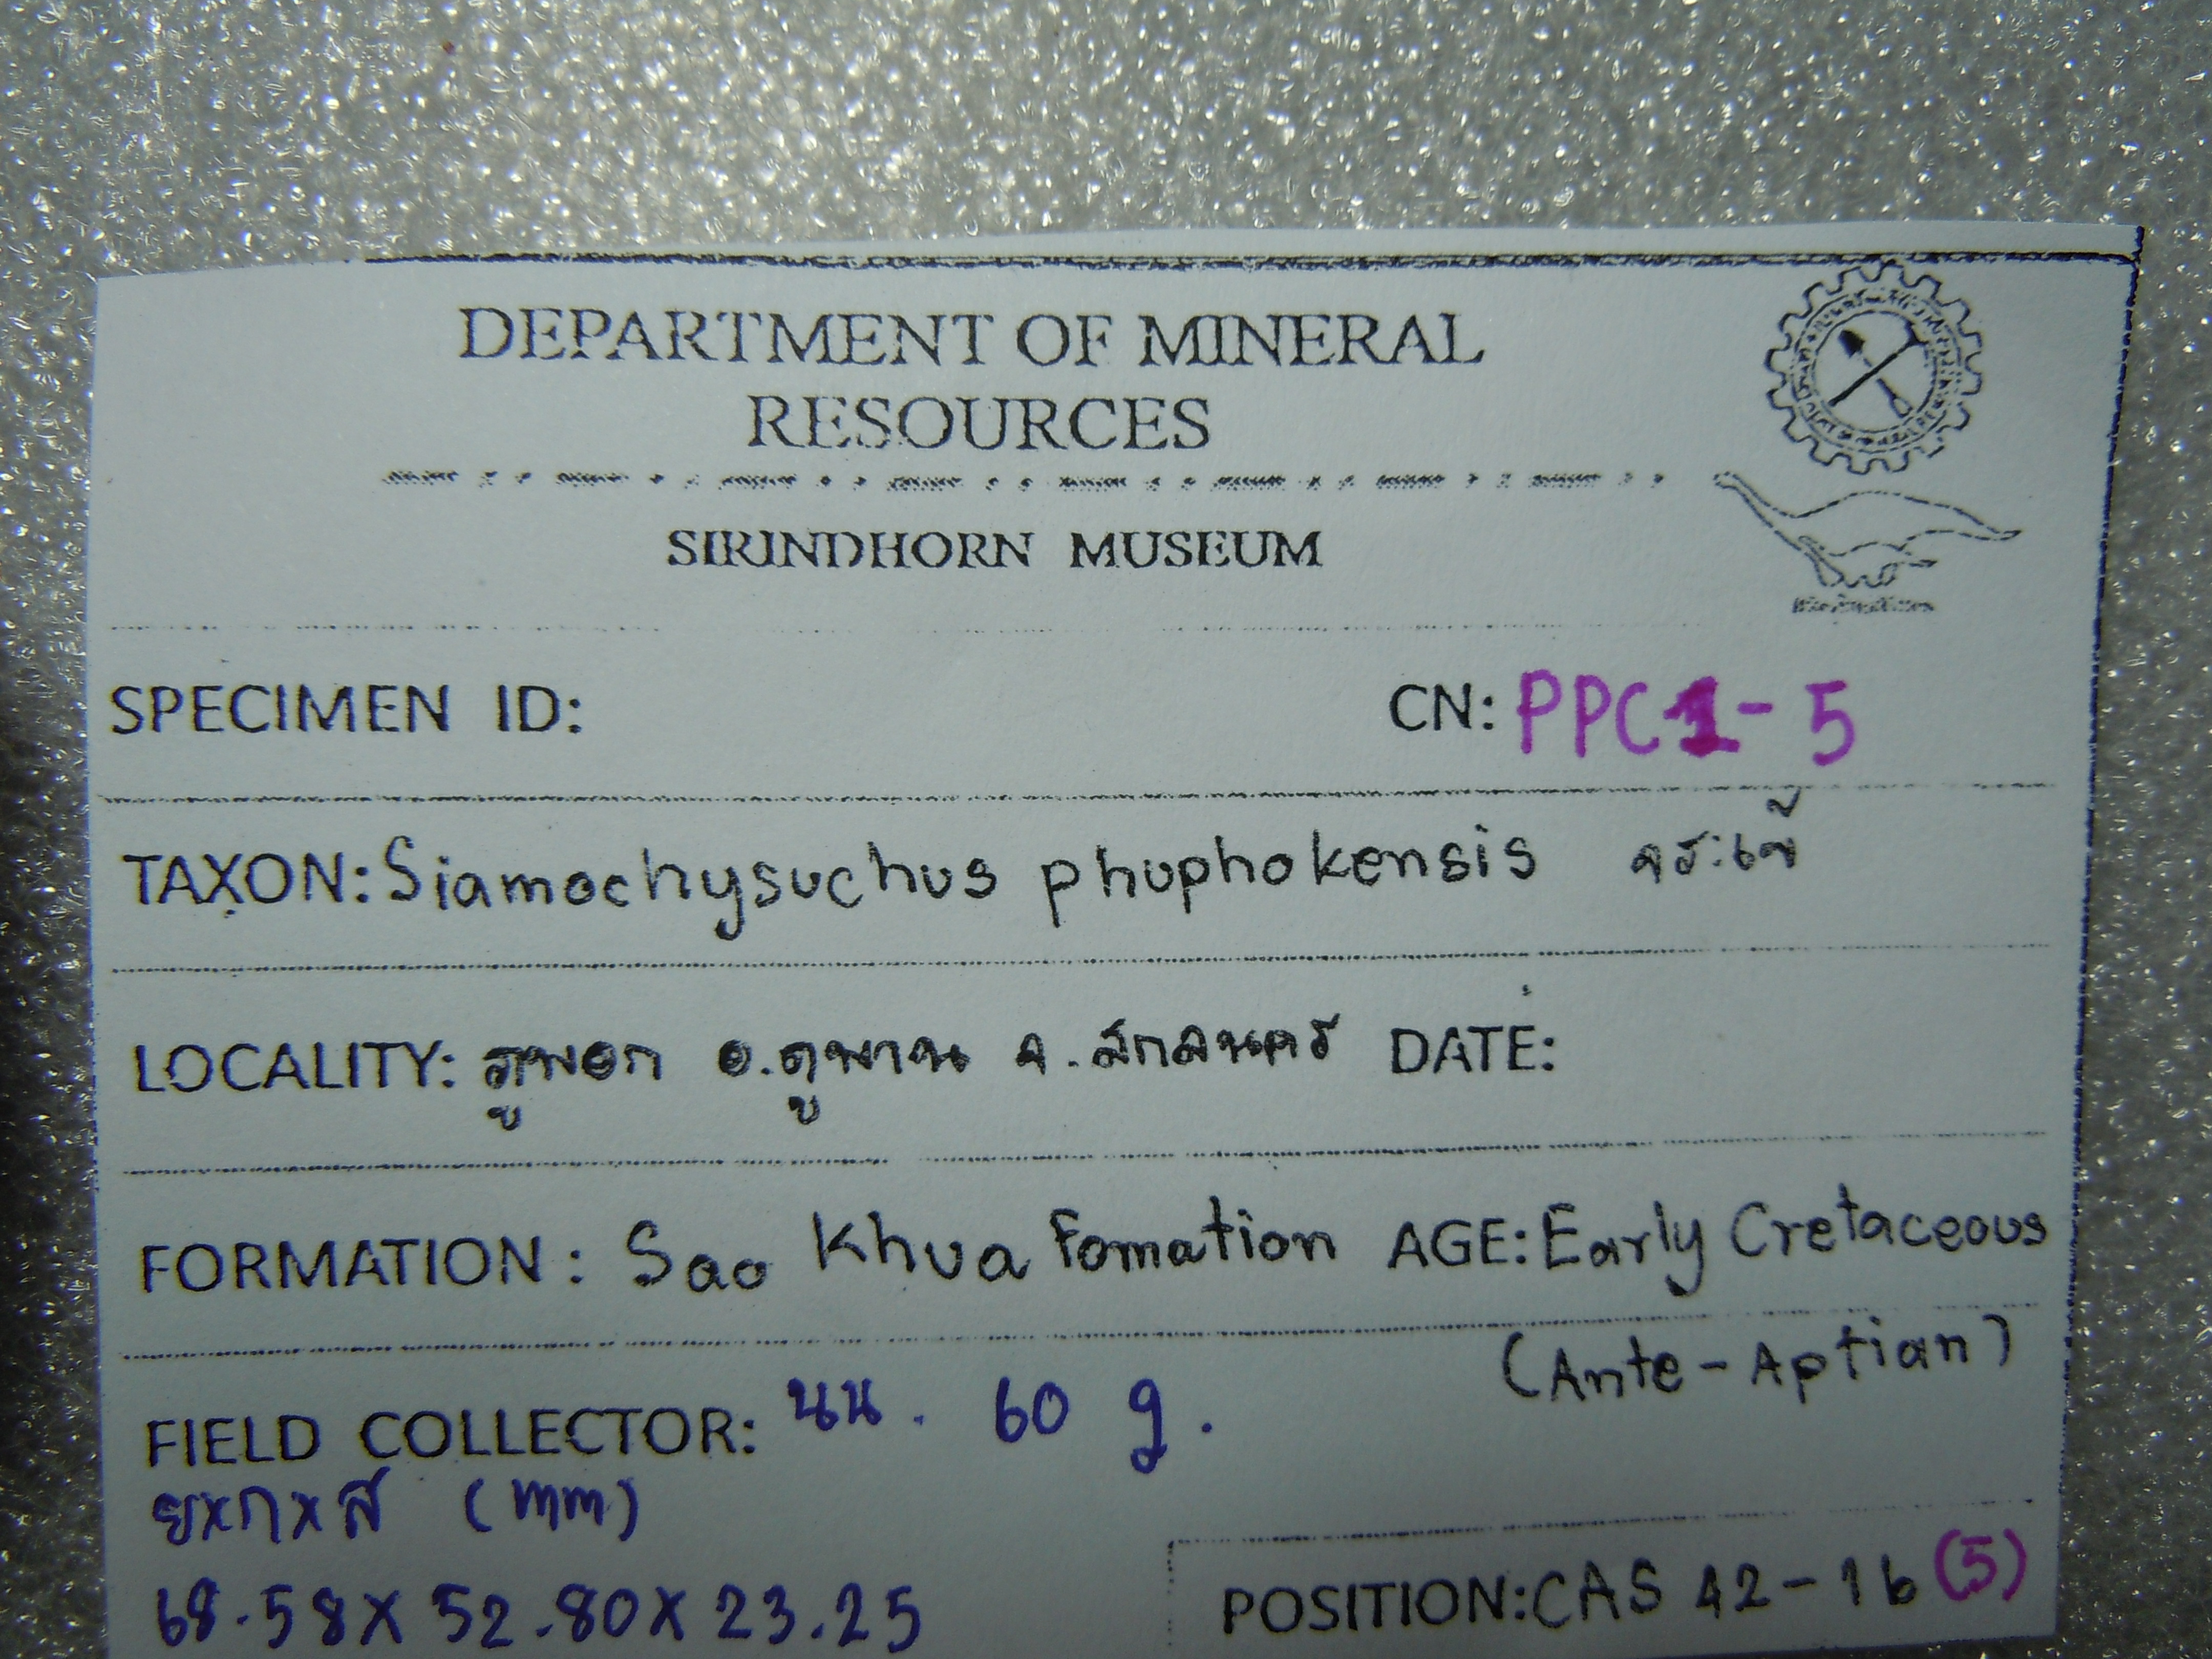 DEPARTMENT OF MINERAL
RESOURCES
SIRINDHORN MUSEUM
SPECIMEN ID: CN: PPC1-5
TAXON: Siamochysuchus phuphokensis จระเข้
LOCALITY: ภูพอก อ.ภูพาน จ.สกลนคร DATE:
FORMATION: Sao Khua Fomation AGE: Early Cretaceous
(Ante-Aptian)
FIELD COLLECTOR: นน. 60 g.
ยxกxส (mm)
68.58x52.80x23.25
POSITION: CAS 42-16 (5)